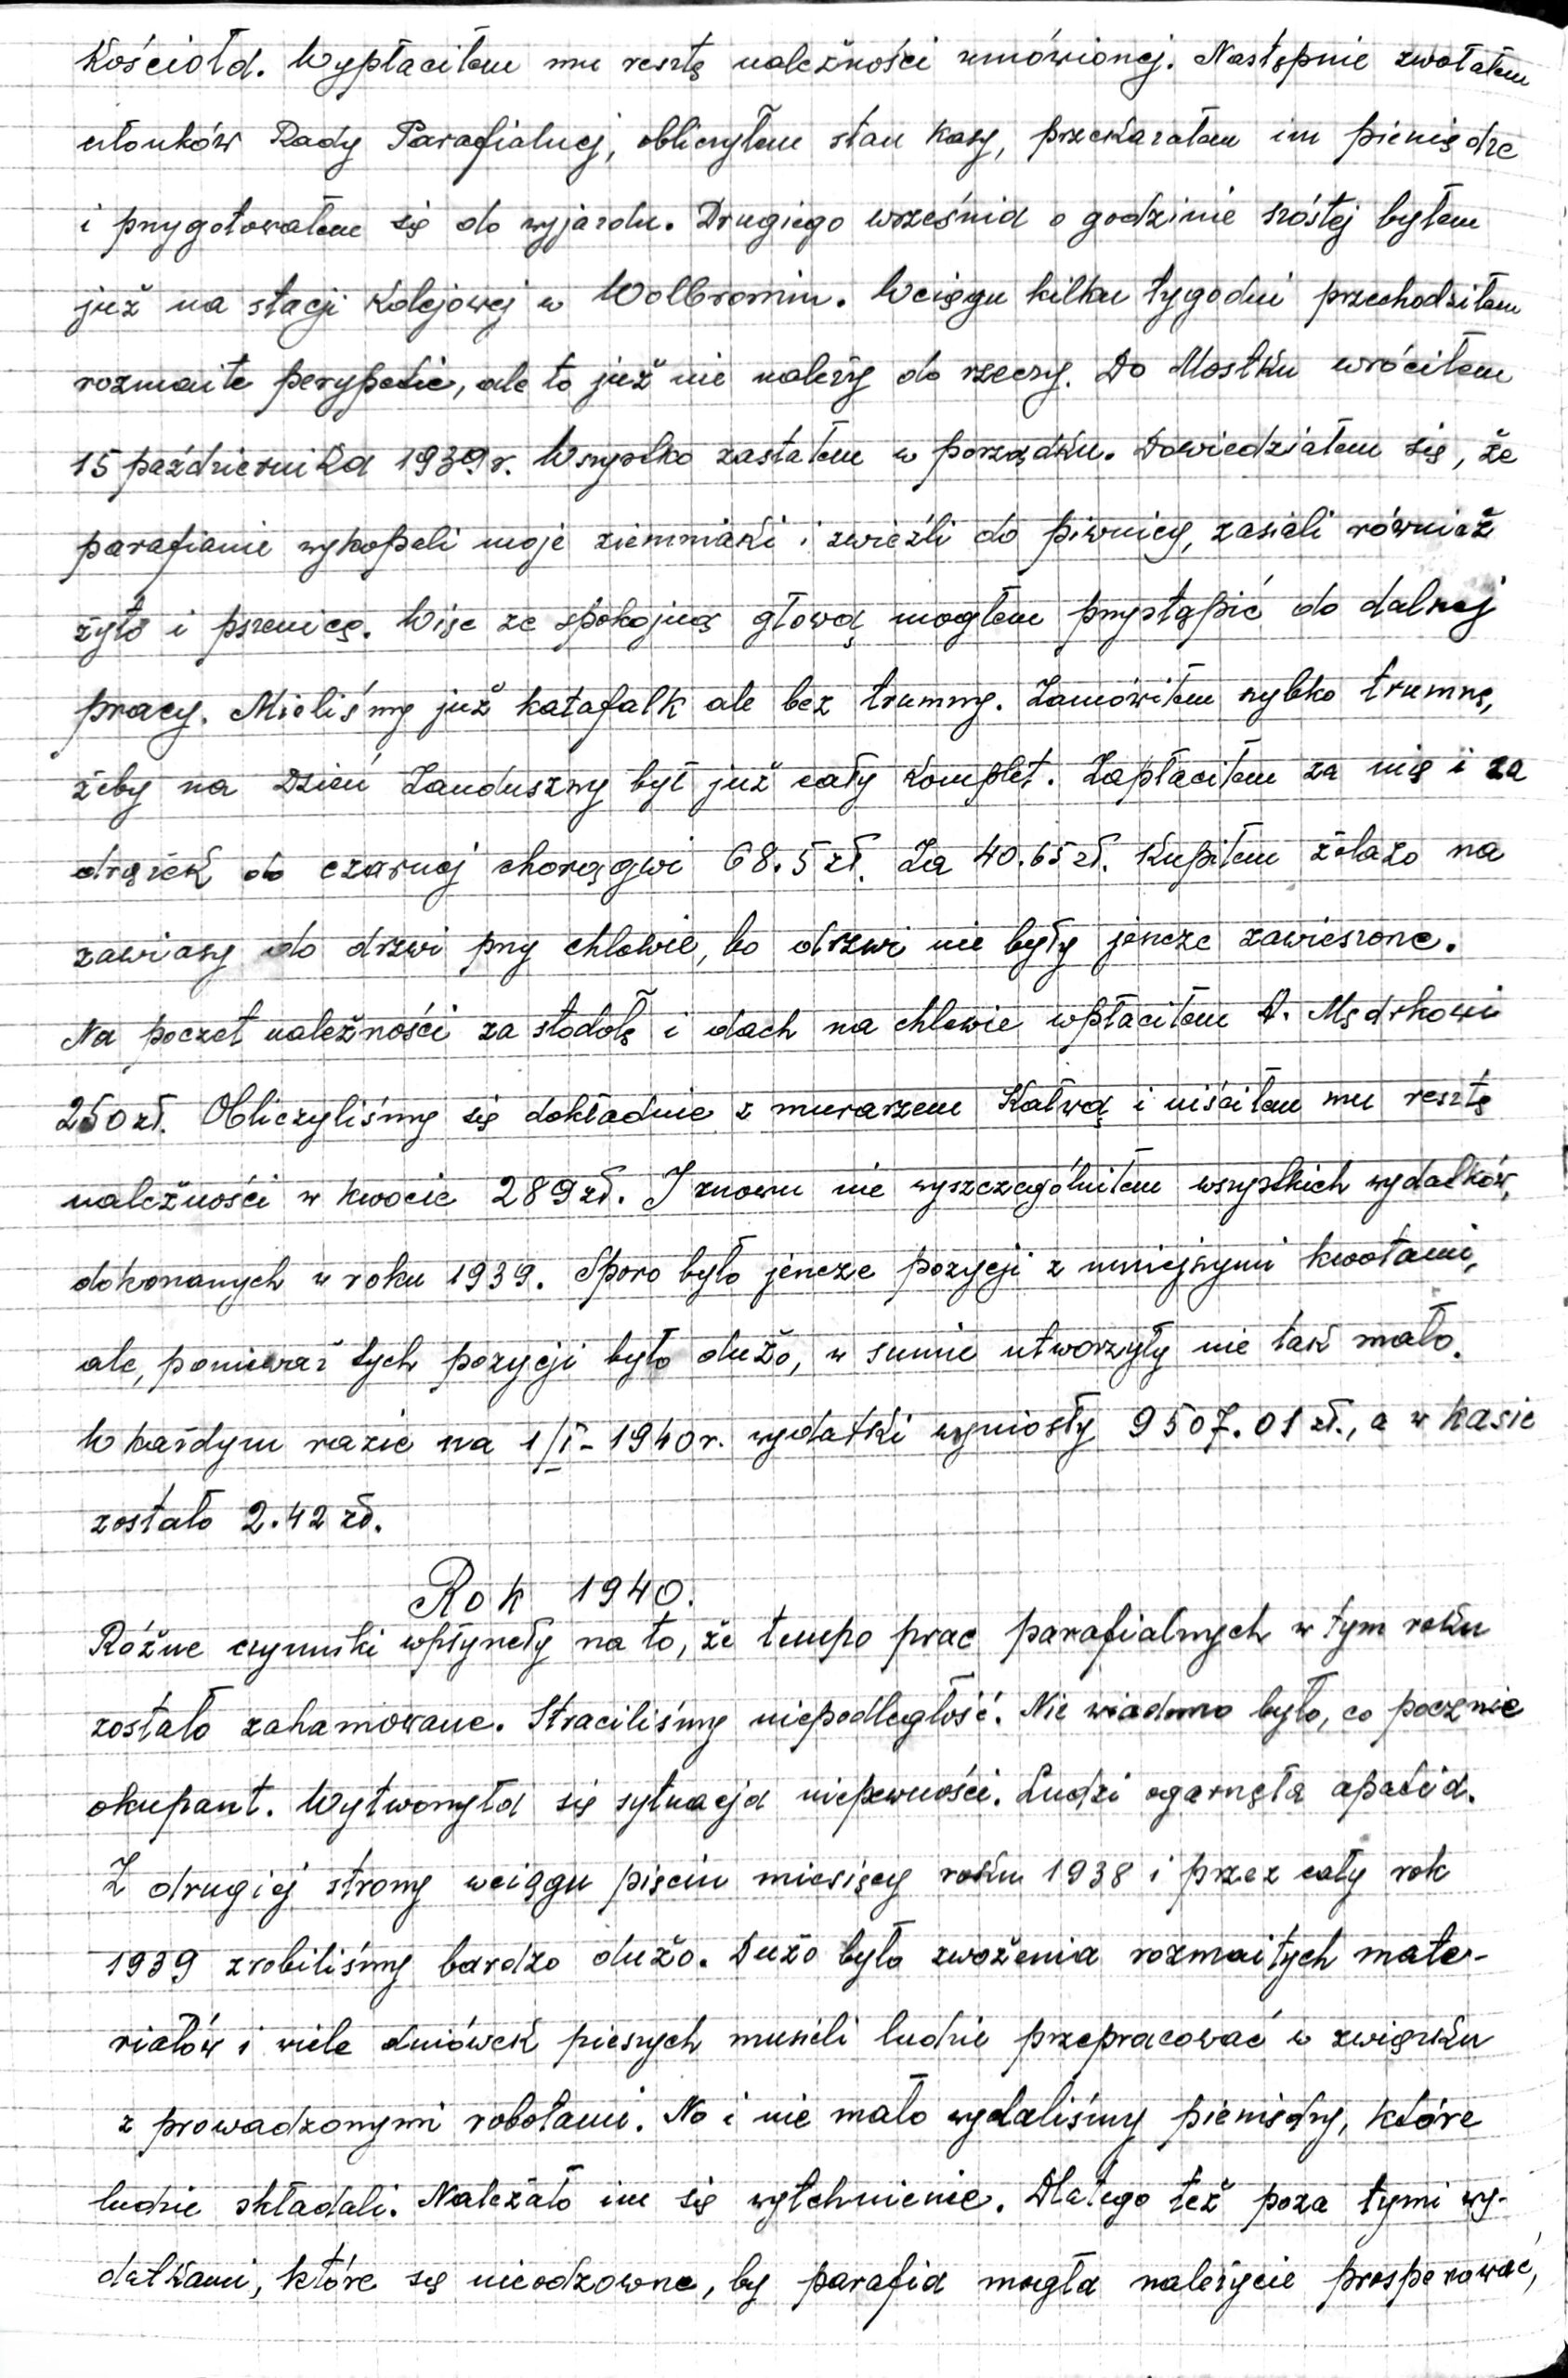 Kościoła. Wypłaciłem mu resztę należności umówionej. Następnie zwołałem
członków Rady Parafialnej, obliczyłem stan kasy, przekazałem im pieniądze
i przygotowałem się do wyjazdu. Drugiego września o godzinie szóstej byłem
już na stacji kolejowej w Wolbromiu. Wciągu kilku tygodni przechodziłem
rozmaite perypetie, ale to już nie należy do rzeczy. Do Mostku wróciłem
15 października 1939 r. Wszystko zastałem w porządku. Dowiedziałem się, że
parafianie wykopali moje ziemniaki i zwieźli do piwnicy, zasiali również
żyto i pszenicę. Więc ze spokojną głową mogłem przystąpić do dalszej
pracy. Mieliśmy już katafalk ale bez trumny. Zamówiłem szybko trumnę,
żeby na Dzień Zaduszny był już cały komplet. Zapłaciłem za nią i za
drążek do czarnej chorągwi 68.5 zł. Za 40.65 zł. kupiłem żelazo na
zawiasy do drzwi przy chlewie, bo drzwi nie były jeszcze zawieszone.
Na poczet należności za stodołę i dach na chlewie wpłaciłem A. Mędrkowi
250 zł. Obliczyliśmy się dokładnie z murarzem Kałwą i uiściłem mu resztę
należności w kwocie 289 zł. I znowu nie wyszczególniłem wszystkich wydatków,
dokonanych w roku 1939. Sporo było jeszcze pozycji z mniejszymi kwotami,
ale, ponieważ tych pozycji było dużo, w sumie utworzyły nie tak mało.
W każdym razie na 1/I-1940 r. wydatki wyniosły 9507.01 zł., a w kasie
zostało 2.42 zł.
Rok 1940.
Różne czynniki wpłynęły na to, że tempo prac parafialnych w tym roku
zostało zahamowane. Straciliśmy niepodległość. Nie wiadomo było, co pocznie
okupant. Wytworzyła się sytuacja niepewności. Ludzi ogarnęła apatia.
Z drugiej strony wciągu pięciu miesięcy roku 1938 i przez cały rok
1939 zrobiliśmy bardzo dużo. Dużo było zwożenia rozmaitych mate-
riałów i wiele dniówek pieszych musieli ludzie przepracować w związku
z prowadzonymi robotami. No i nie mało wydaliśmy pieniędzy, które
ludzie składali. Należało im się wytchnienie. Dlatego też poza tymi wy-
datkami, które są nieodzowne, by parafia mogła należycie prosperować,